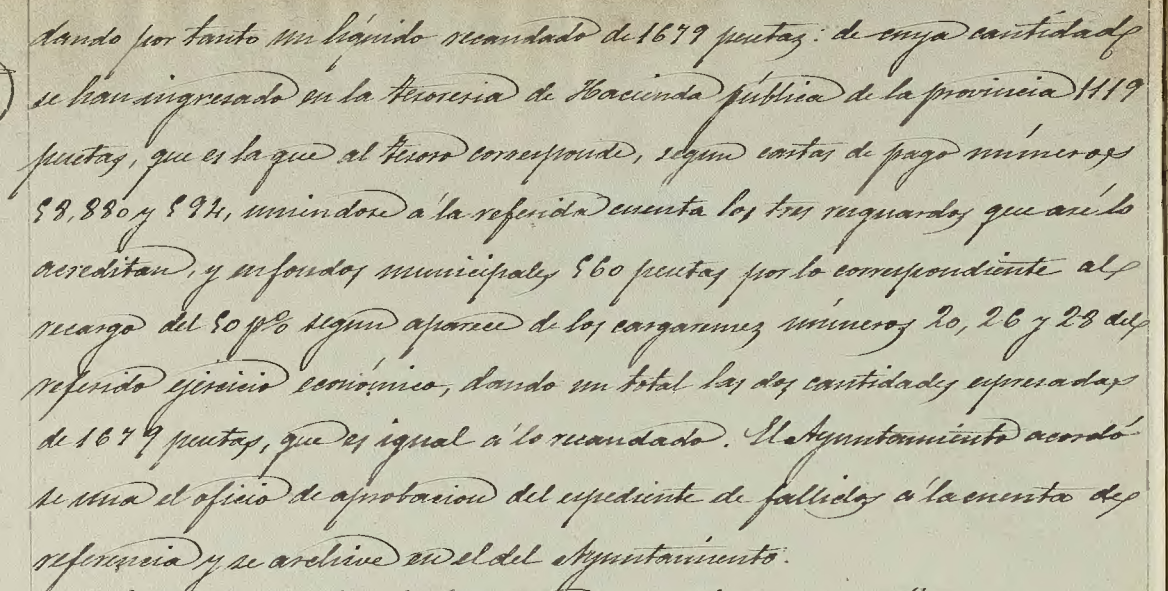 dando por tanto un líquido recaudado de 1679 pesetas: de cuya cantidad
se han ingresado en la tesoreria de Hacienda pública de la provincia 1119
pesetas, que es la que al tesoro corresponde, segun cartas de pago números
58, 880 y 594, uniendose á la referida cuenta los tres resguardos que asi lo
acreditan, y en fondos municipales 560 pesetas por lo correspondiente al
recargo del 50 p% segun aparece de los cargaremes números 20, 26 y 28 del
referido ejercicio económico, dando un total las dos cantidades espresadas
de 1679 pesetas, que es igual á lo recaudado. El Ayuntamiento acordó
se una el oficio de aprobacion del espediente de fallidos á la cuenta de
referencia y se archive en el del Ayuntamiento.